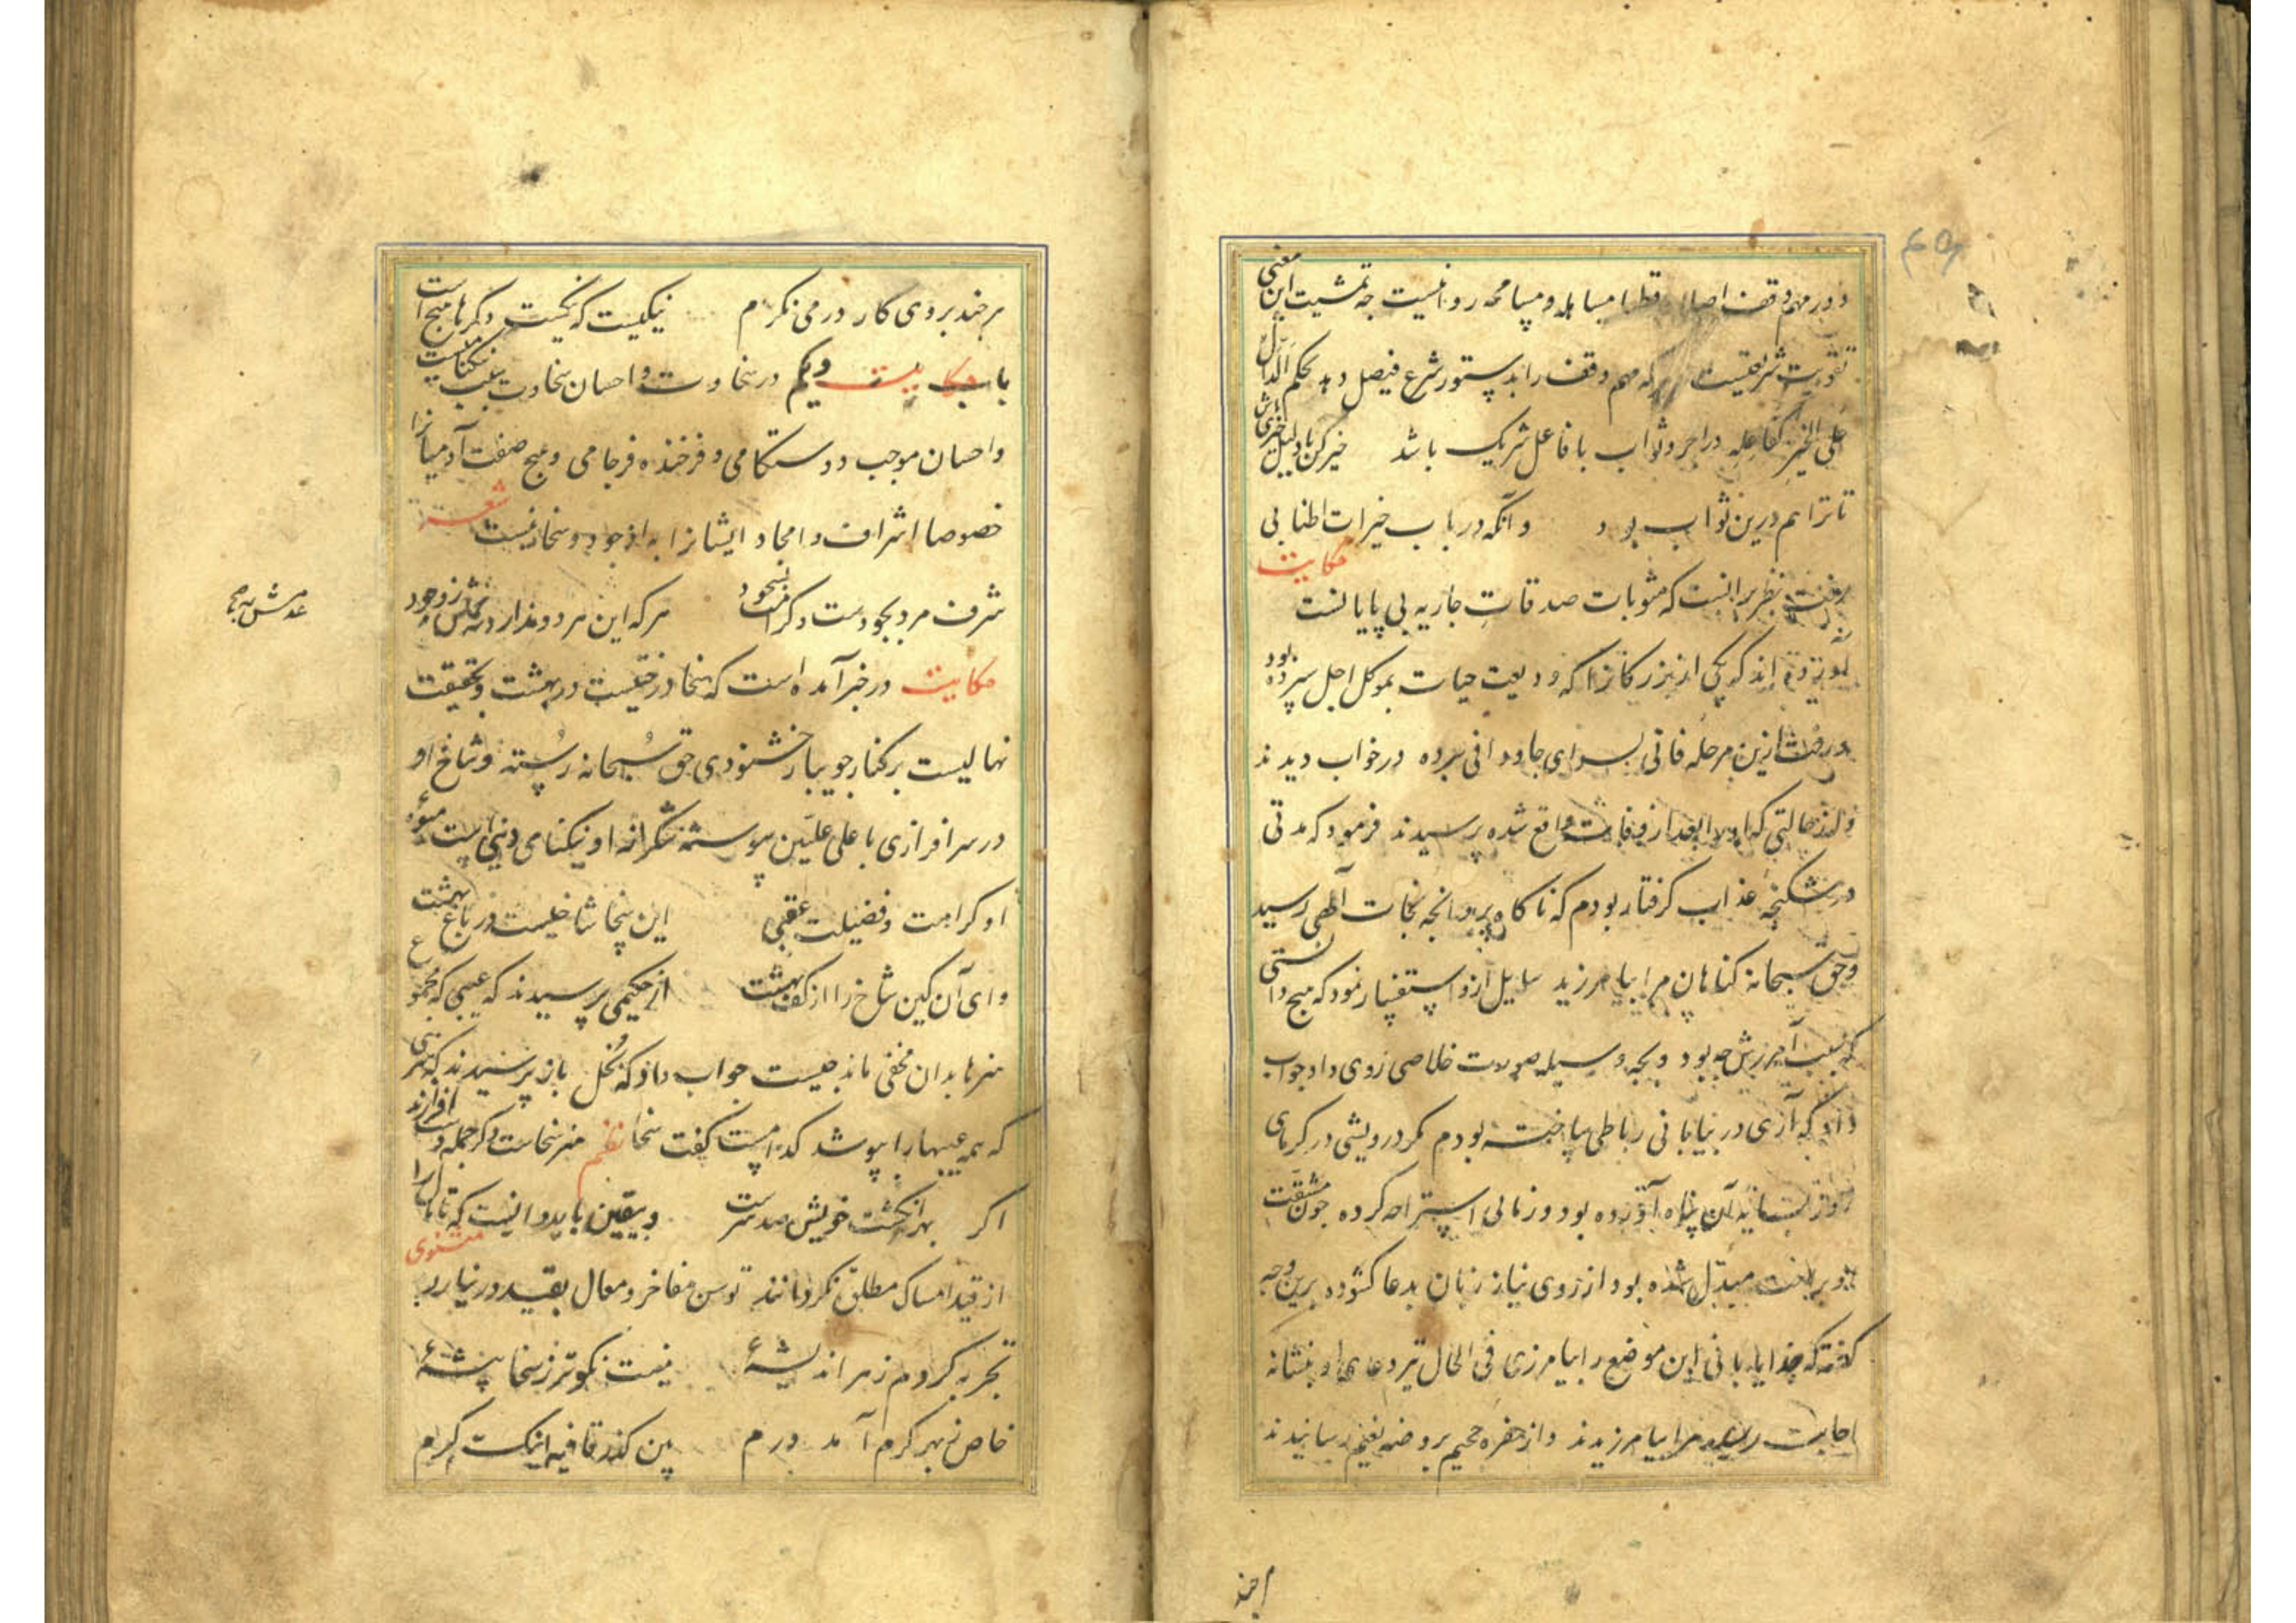 و در مهم وقف اصلا و قطعا مساهله و مسامحه روا نیست چه تمشیت این معنی
تقویت شریعتست هر که مهم وقف را بدستور شرع فیصل دهد بحکم الدال
علی الخیر کفاعله در اجر و ثواب با فاعل شریک باشد خیر کن یا دلیل خیری باش
تا ترا هم درین ثواب بود و آنکه در باب خیرات اطنابی
رفت نظر برانست که مثوبات صدقات جاریه بی پایانست حکایت
آورده اند که یکی از بزرکانرا که ودیعت حیات بموکل اجل سپرده بود
و رخت ازین مرحله فانی بسرای جاودانی برده در خواب دیدند
و از حالتی که او را بعد از وفات واقع شده پرسیدند فرمود که مدتی
در شکنجه عذاب کرفتار بودم که ناکاه پروانجه نجات آلهی رسید
و حق سبحانه کناهان مرا بیامرزید سایل ازو استفسار نمود که هیچ دانستی
که سبب آمرزش چه بود و بچه وسیله صورت خلاصی روی داد جواب
داد که آری در بیابانی رباطی ساخته بودم مکر درویشی در کرمای
روز بسایه آن پناه آورده بود و زمانی استراحه کرده چون مشقت
او براحت مبدل شده بود از روی نیاز زبان بدعا کشوده برین وجه
کفته که خدایا بانی این موضع را بیامرزی فی الحال تیر دعای او بنشانه
اجابت رسید مرا بیامرزیدند و از حفره جحیم بروضه نعیم رسانیدند
هر چند
هر چند بروی کار در می نکرم نیکیست که نیکیست دکرها هیچ است
باب بیست ویکم در سخاوت و احسان سخاوت سبب نیکنامیست
حکایت
و احسان موجب دوستکامی و فرخنده فرجامی و هیچ صفت آدمیانرا
خصوصا اشراف و امجاد ایشانرا به از جود و سخا نیست شعر
شرف مرد بجودست و کرامت بسجود هر که این هر دو ندارد عدمش به ز وجود
عدمش به
حکایت در خبر آمده است که سخا درختیست در بهشت و بحقیقت
نهالیست بر کنار جویبار خشنودی حق سبحانه رسته و شاخ او
در سرافرازی با علی علیین پیوسته شکرانه او نیکنامی دنیاست میوه
او کرامت و فضیلت عقبی این سخا شاخیست در باغ بهشت ع
وای آن کین شاخ را از کف بهشت از حکیمی پرسیدند که عیبی که مجموع
هنرها بدان مخفی ماند چیست جواب داد که بخل باز پرسیدند که هنری
که همه عیبها را بپوشد کدامست کفت سخا نظم هنر سخاست و کر جمله دست افزارند
اکر بهر انکشت خویش صد هنرست و بیقین باید دانست که تا مال را
از قید امساک مطلق نکردانند توسن مفاخر و معال بقید در نیارد مثنوی
تجربه کردم ز هر اندیشهٔ نیست نکوتر ز سخا پیشهٔ
خاص ز بهر کرم آمد درم پن کذر قافیه اینک کرم